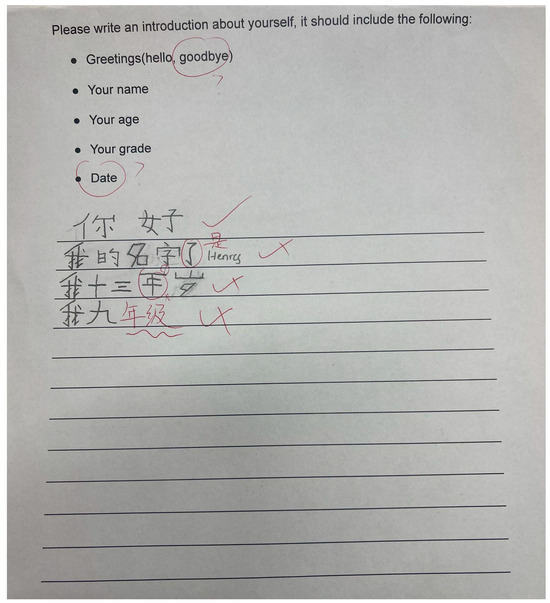 Please write an introduction about yourself, it should include the following:
Greetings(hello, goodbye)
?
Your name
Your age
Your grade
Date ?
你 好
我的名字了是 Henry
我十三年岁
我九年级